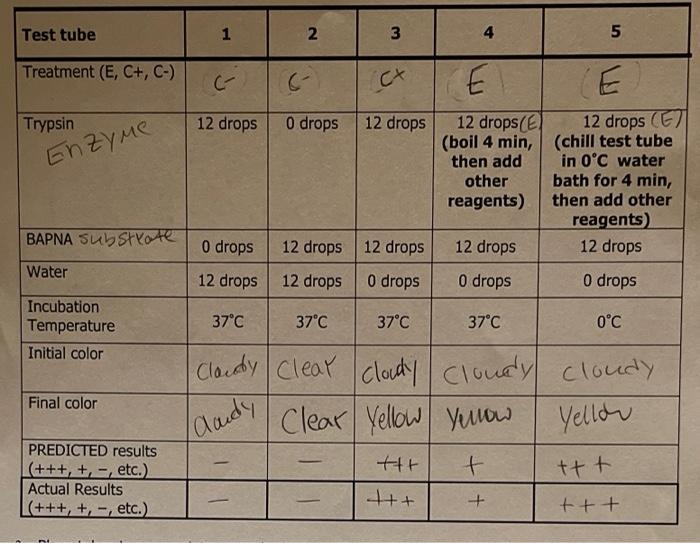 Test tube 1 2 3 4 5
Treatment (E, C+, C-) C- C- C+ E E
Trypsin 12 drops 0 drops 12 drops 12 drops (E) 12 drops (E)
Enzyme (boil 4 min, (chill test tube
then add in 0°C water
other bath for 4 min,
reagents) then add other
reagents)
BAPNA Substrate 0 drops 12 drops 12 drops 12 drops 12 drops
Water 12 drops 12 drops 0 drops 0 drops 0 drops
Incubation
Temperature 37°C 37°C 37°C 37°C 0°C
Initial color Cloudy Clear Cloudy Cloudy Cloudy
Final color Cloudy Clear Yellow Yellow Yellow
PREDICTED results
(+++, +, −, etc.) − − +++ + +++
Actual Results
(+++, +, −, etc.) − − +++ + +++